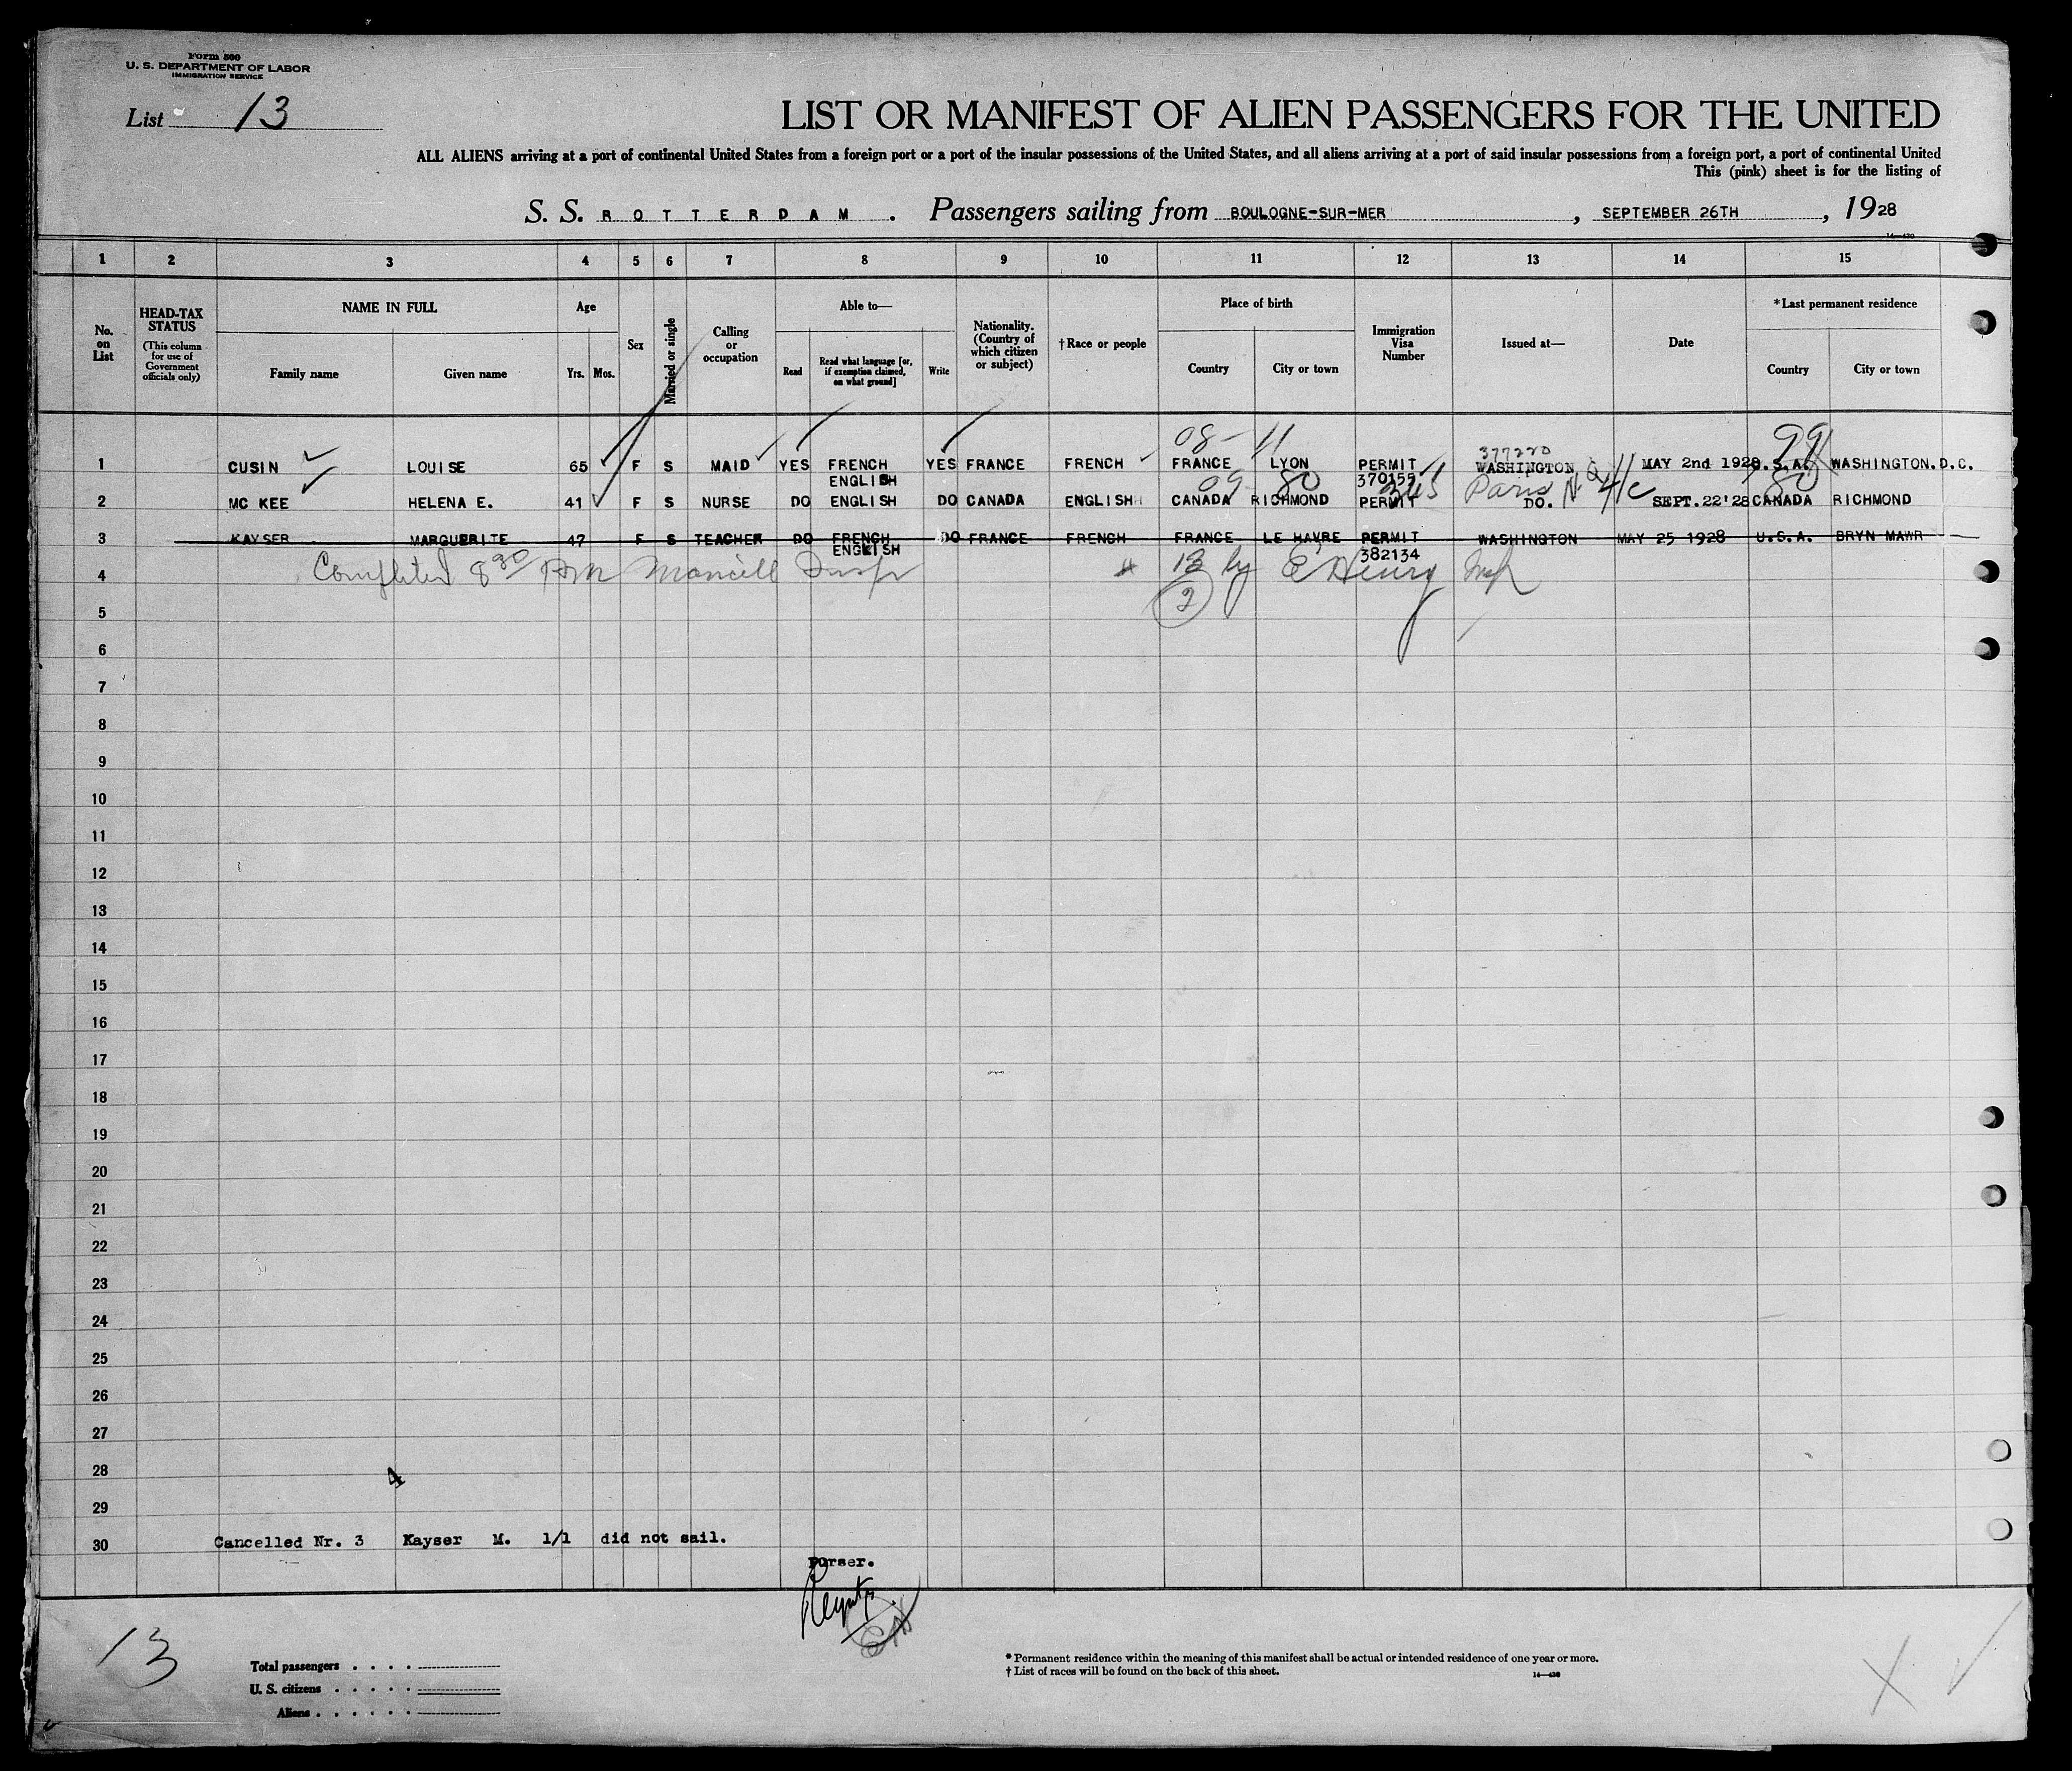 Form 500
U. S. DEPARTMENT OF LABOR
IMMIGRATION SERVICE
List 13
LIST OR MANIFEST OF ALIEN PASSENGERS FOR THE UNITED
ALL ALIENS arriving at a port of continental United States from a foreign port or a port of the insular possessions of the United States, and all aliens arriving at a port of said insular possessions from a foreign port, a port of continental United
This (pink) sheet is for the listing of
S. S. ROTTERDAM. Passengers sailing from BOULOGNE-SUR-MER, SEPTEMBER 26TH, 1928
1 2 3 4 5 6 7 8 9 10 11 12 13 14 15
No. on List
HEAD-TAX STATUS (This column for use of Government officials only)
NAME IN FULL
Family name Given name
Age
Yrs. Mos.
Sex
Married or single
Calling or occupation
Able to—
Read
Read what language [or, if exemption claimed, on what ground]
Write
Nationality. (Country of which citizen or subject)
†Race or people
Place of birth
Country City or town
Immigration Visa Number
Issued at—
Date
*Last permanent residence
Country City or town
08- 11 377220 99
1 CUSIN LOUISE 65 F S MAID YES FRENCH YES FRANCE FRENCH FRANCE LYON PERMIT WASHINGTON MAY 2nd 1928 U.S.A. WASHINGTON.D.C.
ENGLISH 370155
09 80 Paris 80
2 MC KEE HELENA E. 41 F S NURSE DO ENGLISH DO CANADA ENGLISH CANADA RICHMOND PERMIT DO. SEPT.22'28 CANADA RICHMOND
3 KAYSER MARGUERITE 47 F S TEACHER DO FRENCH DO FRANCE FRENCH FRANCE LE HAVRE PERMIT WASHINGTON MAY 25 1928 U.S.A. BRYN MAWR
ENGLISH 382134
4 Completed 8 30 PM Insp 13 by E Henry Insp
5 2
6
7
8
9
10
11
12
13
14
15
16
17
18
19
20
21
22
23
24
25
26
27
28 4
29
30 Cancelled Nr. 3 Kayser M. 1/1 did not sail.
Purser.
13
Total passengers
U. S. citizens
Aliens
* Permanent residence within the meaning of this manifest shall be actual or intended residence of one year or more.
† List of races will be found on the back of this sheet.
14—430